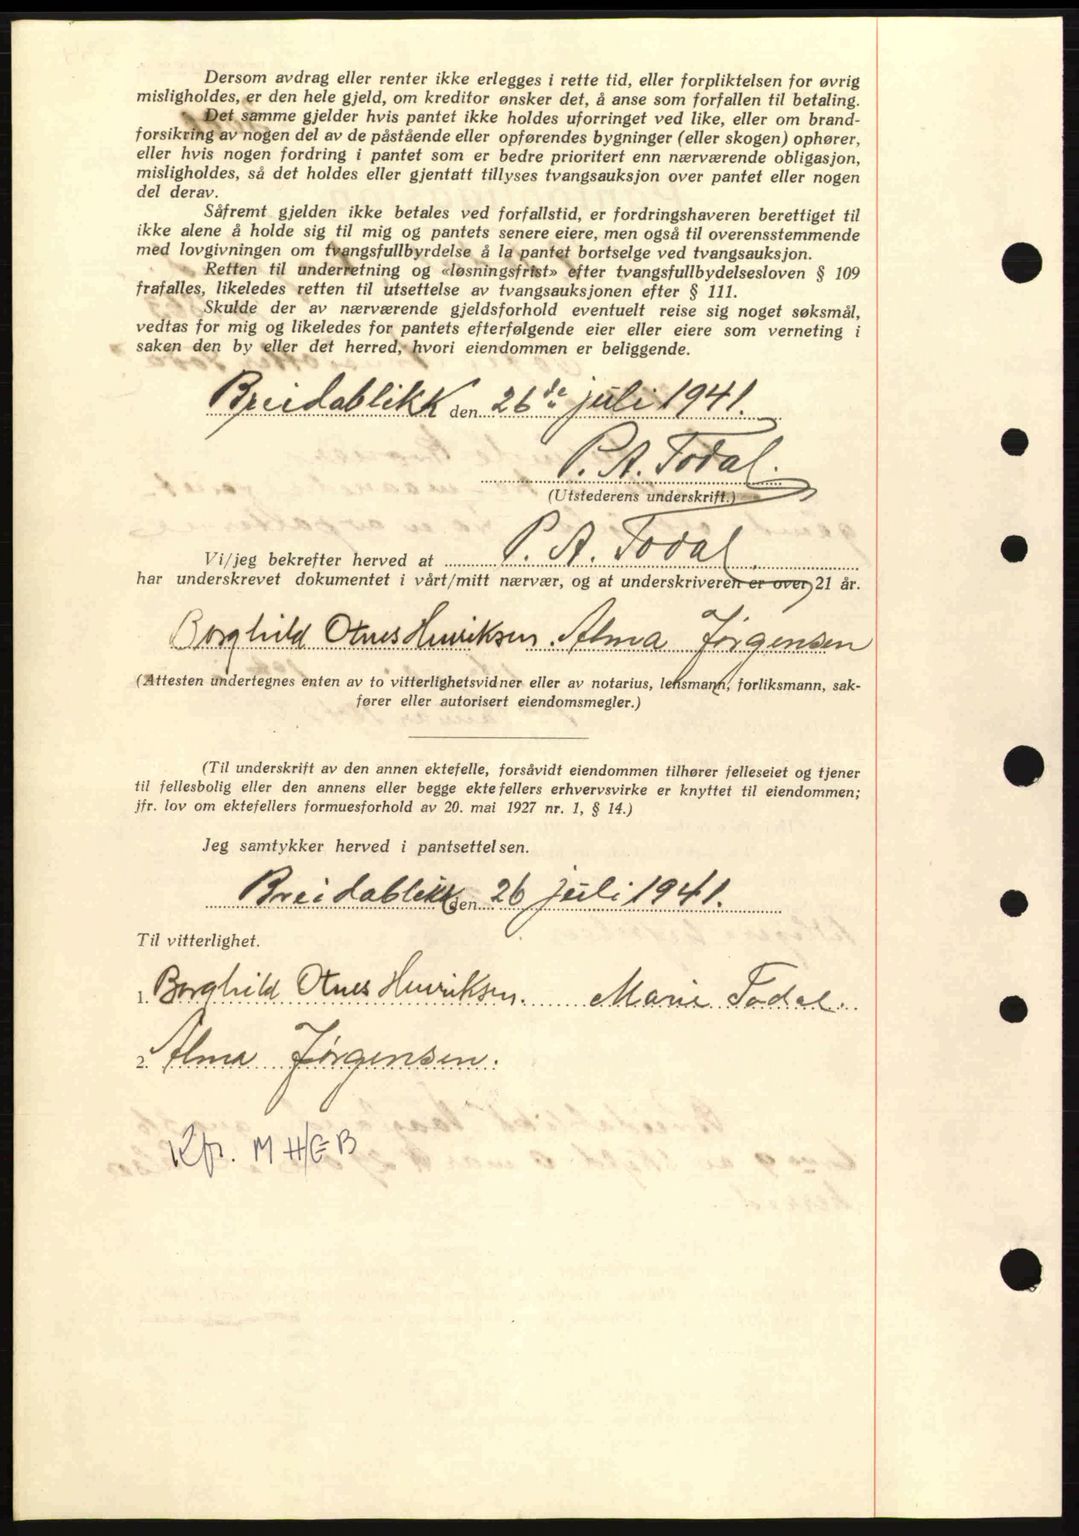 Dersom avdrag eller renter ikke erlegges i rette tid, eller forpliktelsen for øvrig
misligholdes, er den hele gjeld, om kreditor ønsker det, å anse som forfallen til betaling.
Det samme gjelder hvis pantet ikke holdes uforringet ved like, eller om brand-
forsikring av nogen del av de påstående eller opførendes bygninger (eller skogen) ophører,
eller hvis nogen fordring i pantet som er bedre prioritert enn nærværende obligasjon,
misligholdes, så det holdes eller gjentatt tillyses tvangsauksjon over pantet eller nogen
del derav.
Såfremt gjelden ikke betales ved forfallstid, er fordringshaveren berettiget til
ikke alene å holde sig til mig og pantets senere eiere, men også til overensstemmende
med lovgivningen om tvangsfullbyrdelse å la pantet bortselge ved tvangsauksjon.
Retten til underretning og «løsningsfrist» efter tvangsfullbydelsesloven § 109
frafalles, likeledes retten til utsettelse av tvangsauksjonen efter § 111.
Skulde der av nærværende gjeldsforhold eventuelt reise sig noget søksmål,
vedtas for mig og likeledes for pantets efterfølgende eier eller eiere som verneting i
saken den by eller det herred, hvori eiendommen er beliggende.
Breidablikk den 26de juli 1941.
P. A. Todal.
(Utstederens underskrift.)
Vi/jeg bekrefter herved at P. A. Todal
har underskrevet dokumentet i vårt/mitt nærvær, og at underskriveren er over 21 år.
Borghild Otnes Henriksen. Alma Jørgensen
(Attesten undertegnes enten av to vitterlighetsvidner eller av notarius, lensmann, forliksmann, sak-
fører eller autorisert eiendomsmegler.)
(Til underskrift av den annen ektefelle, forsåvidt eiendommen tilhører felleseiet og tjener
til fellesbolig eller den annens eller begge ektefellers erhvervsvirke er knyttet til eiendommen;
jfr. lov om ektefellers formuesforhold av 20. mai 1927 nr. 1, § 14.)
Jeg samtykker herved i pantsettelsen.
Breidablikk den 26 juli 1941.
Til vitterlighet.
1. Borghild Otnes Henriksen. Marie Todal.
2. Alma Jørgensen.
Kfr.